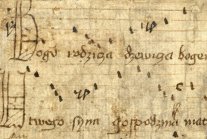 Bogu rodzicza dzewicza bogem
U twego syna gospodzina mat